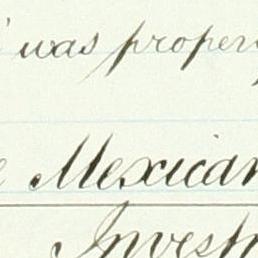 was proper
Mexican
Invest